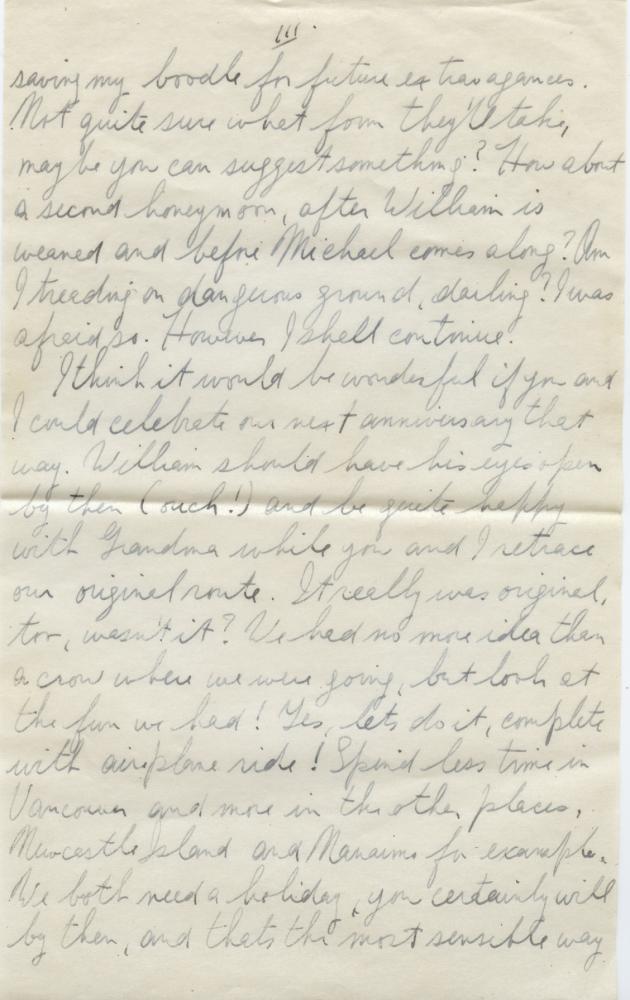 III.
saving my boodle for future extravagances.
Not quite sure what form they'll take,
maybe you can suggest something? How about
a second honeymoon, after William is
weaned and before Michael comes along? Am
I treading on dangerous ground, darling? I was
afraid so. However I shall continue.
I think it would be wonderful if you and
I could celebrate our next anniversary that
way. William should have his eyes open
by then (ouch!) and be quite happy
with Grandma while you and I retrace
our original route. It really was original,
too, wasn't it? We had no more idea than
a crow where we were going, but look at
the fun we had! Yes, lets do it, complete
with airplane ride! Spend less time in
Vancouver and more in the other places,
Newcastle Island and Nanaimo for example.
We both need a holiday, you certainly will
by then, and thats the most sensible way